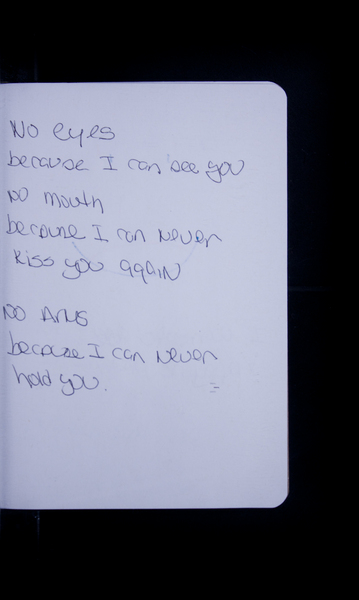 NO eyes
because I can see you
NO mouth
because I can never
kiss you again
NO ARMS
because I can never
hold you.